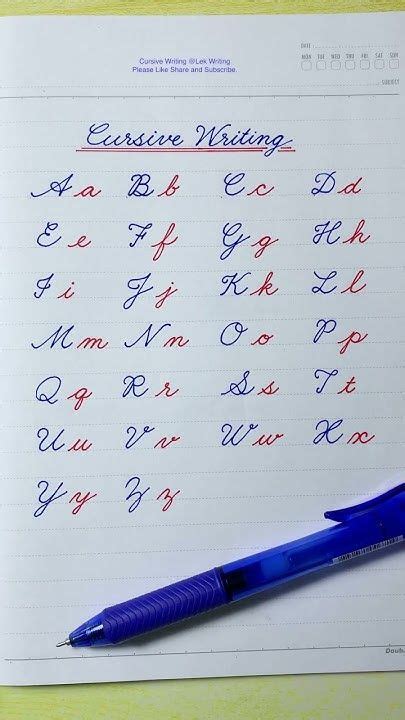 Cursive Writing @Lek Writing
Please Like Share and Subscribe.
DATE
MON TUE WED THU FRI SAT SUN
SUBJECT
Cursive Writing
A a B b C c D d
E e F f G g H h
I i J j K k L l
M m N n O o P p
Q q R r S s T t
U u V v W w X x
Y y Z z